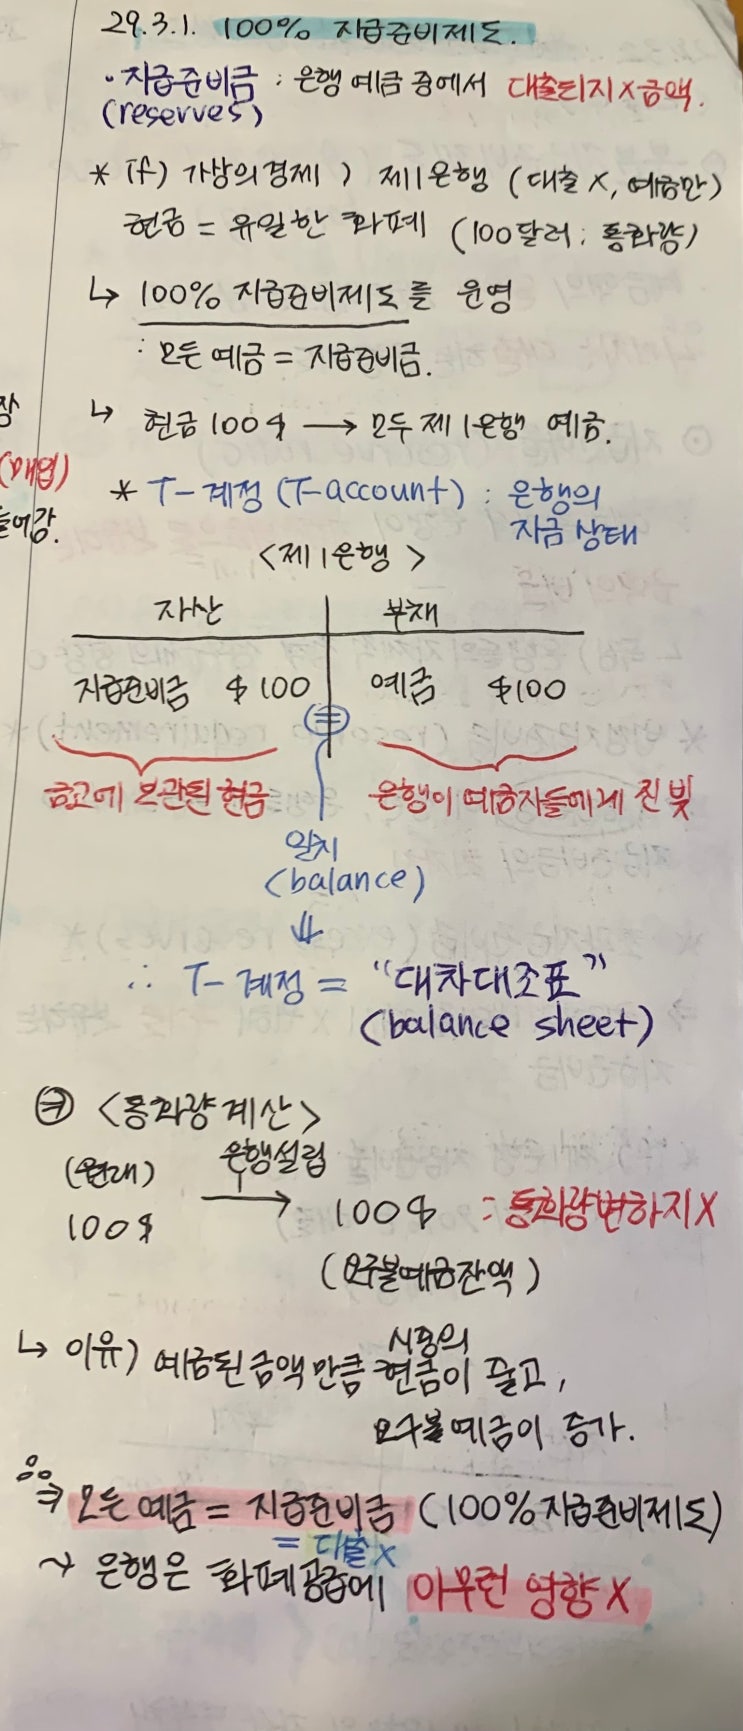 29.3.1. 100% 지급준비제도.
• 지급준비금 : 은행 예금 중에서 대출되지 X 금액.
(reserves)
* if) 가상의 경제 ) 제1은행 (대출 X, 예금만)
현금 = 유일한 화폐 (100달러 ; 통화량)
↳ 100% 지급준비제도를 운영
: 모든 예금 = 지급준비금.
장
↳ 현금 100$ → 모두 제1은행 예금.
(매입)
* T-계정 (T-account) : 은행의
자금 상태
들어감.
<제1은행>
자산 부채
지급준비금 $100 예금 $100
=
금고에 보관된 현금 은행이 예금자들에게 진 빚
일치
(balance)
⇓
∴ T-계정 = "대차대조표"
(balance sheet)
⇒ <통화량 계산>
(원래) 은행설립
100$ → 100$ : 통화량변하지 X
(요구불예금잔액)
↳ 이유) 예금된 금액만큼 시중의 현금이 줄고,
요구불예금이 증가.
⇒ 모든 예금 = 지급준비금 (100%지급준비제도)
= 대출 X
→ 은행은 화폐공급에 아무런 영향 X